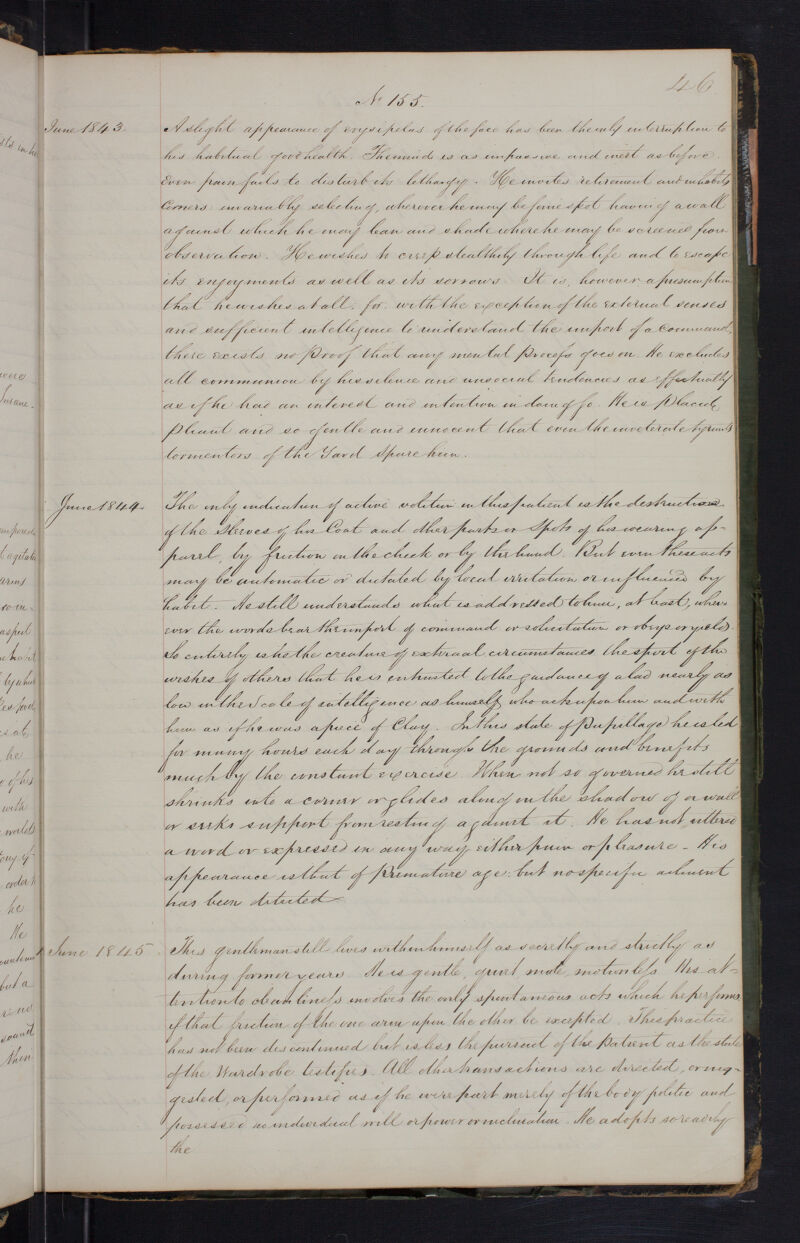 46
No 155.
June 1843. A slight appearance of erysipelas of the face has been the only interruption to
his habitual good health. The mind is as impassive and inert as before.
Even pain fails to disturb its lethargy. He invites retirement and inhabits
Corners invariably selecting, wherever he may be some spot having a wall
against which he may lean and shade where he may be screened from
observation. He wishes to creep stealthily through life and to escape
its enjoyments as well as its sorrows. It is, however a presumption
that he wishes at all. for with the exception of the external senses
and sufficient intelligence to understand the import of a command,
there exists no proof that any mental process goes on. He excludes
all communion by his silence and unsocial tendencies as effectually
as if he had an interest and intention in doing so. He is placid,
pliant and so gentle and innocent that even the inveterate
tormentors of the Yard spare him.
June 1844. The only indication of active volition in this patient is the destruction
of the sleeves of his Coat and other parts or spots of his wearing ap-
parel, by friction on the cheek or by the hand. But even these acts
may be automatic or dictated by local irritation or influenced by
habit. He still understands what is addressed to him, at least, when-
ever the words bear the import of command or solicitation or obeys or yields.
So entirely is he the creature of external circumstances the sport of the
wishes of others that he is entrusted to the guidance of a lad nearly as
low in the scale of intelligence as himself, who acts upon him and with
him as if he was a piece of Clay. In this state of pupillage he is led
for many hours each day through the grounds and benefits
much by the constant exercise. When not so governed he still
shrinks into a corner or glides along in the shadow of a wall
or seeks support from resting against it. He has not uttered
a word or expressed in any way either pain or pleasure - His
appearance is that of premature age: but no specific ailment
has been detected
June 1845. This gentleman still lives within himself as secretly and strictly as
during former years. He is gentle, quiet mute, motionless His at-
tention to cleanliness involves the only spontaneous acts which he performs
if that friction of the one arm upon the other be excepted. This practice
has not been discontinued but is less the pursuit of the patient as the state
of the Wardrobe testifies. All other transactions are directed, or sug-
gested, or performed as if he were part merely of the body politic and
possessed no individual will or power or inclination. He adopts so readily
the